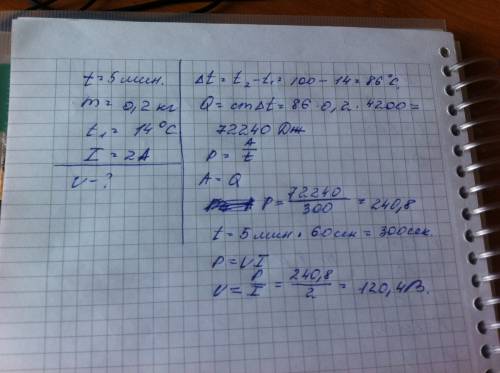 t = 5 мин.
m = 0,2 кг
t₁ = 14°C
I = 2A
U - ?
Δt = t₂ - t₁ = 100 - 14 = 86°C
Q = cmΔt = 86 · 0,2 · 4200 =
72240 Дж
P = A/t
A = Q
P = 72240/300 = 240,8
t = 5 мин · 60 сек = 300 сек.
P = UI
U = P/I = 240,8/2 = 120,4 В.